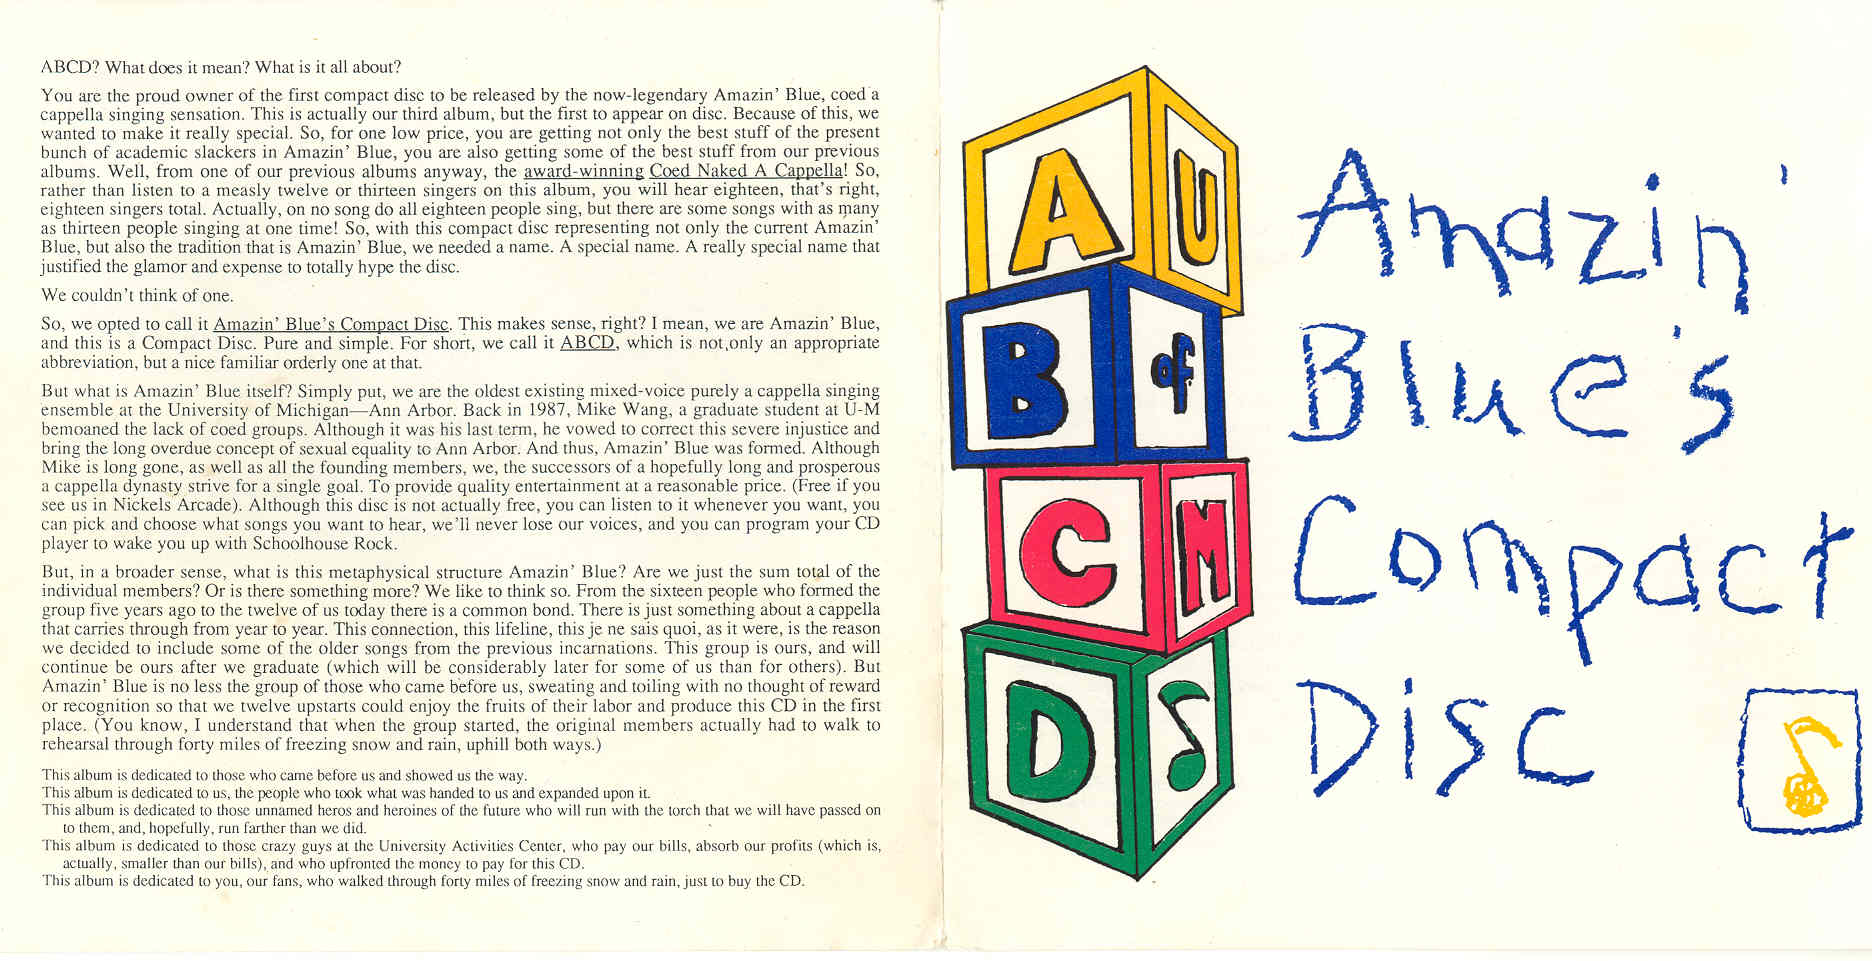 ABCD? What does it mean? What is it all about?
You are the proud owner of the first compact disc to be released by the now-legendary Amazin' Blue, coed a
cappella singing sensation. This is actually our third album, but the first to appear on disc. Because of this, we
wanted to make it really special. So, for one low price, you are getting not only the best stuff of the present
bunch of academic slackers in Amazin' Blue, you are also getting some of the best stuff from our previous
albums. Well, from one of our previous albums anyway, the award-winning Coed Naked A Cappella! So,
rather than listen to a measly twelve or thirteen singers on this album, you will hear eighteen, that's right,
eighteen singers total. Actually, on no song do all eighteen people sing, but there are some songs with as many
as thirteen people singing at one time! So, with this compact disc representing not only the current Amazin'
Blue, but also the tradition that is Amazin' Blue, we needed a name. A special name. A really special name that
justified the glamor and expense to totally hype the disc.
We couldn't think of one.
So, we opted to call it Amazin' Blue's Compact Disc. This makes sense, right? I mean, we are Amazin' Blue,
and this is a Compact Disc. Pure and simple. For short, we call it ABCD, which is not only an appropriate
abbreviation, but a nice familiar orderly one at that.
But what is Amazin' Blue itself? Simply put, we are the oldest existing mixed-voice purely a cappella singing
ensemble at the University of Michigan—Ann Arbor. Back in 1987, Mike Wang, a graduate student at U-M
bemoaned the lack of coed groups. Although it was his last term, he vowed to correct this severe injustice and
bring the long overdue concept of sexual equality to Ann Arbor. And thus, Amazin' Blue was formed. Although
Mike is long gone, as well as all the founding members, we, the successors of a hopefully long and prosperous
a cappella dynasty strive for a single goal. To provide quality entertainment at a reasonable price. (Free if you
see us in Nickels Arcade). Although this disc is not actually free, you can listen to it whenever you want, you
can pick and choose what songs you want to hear, we'll never lose our voices, and you can program your CD
player to wake you up with Schoolhouse Rock.
But, in a broader sense, what is this metaphysical structure Amazin' Blue? Are we just the sum total of the
individual members? Or is there something more? We like to think so. From the sixteen people who formed the
group five years ago to the twelve of us today there is a common bond. There is just something about a cappella
that carries through from year to year. This connection, this lifeline, this je ne sais quoi, as it were, is the reason
we decided to include some of the older songs from the previous incarnations. This group is ours, and will
continue be ours after we graduate (which will be considerably later for some of us than for others). But
Amazin' Blue is no less the group of those who came before us, sweating and toiling with no thought of reward
or recognition so that we twelve upstarts could enjoy the fruits of their labor and produce this CD in the first
place. (You know, I understand that when the group started, the original members actually had to walk to
rehearsal through forty miles of freezing snow and rain, uphill both ways.)
This album is dedicated to those who came before us and showed us the way.
This album is dedicated to us, the people who took what was handed to us and expanded upon it.
This album is dedicated to those unnamed heros and heroines of the future who will run with the torch that we will have passed on
to them, and, hopefully, run farther than we did.
This album is dedicated to those crazy guys at the University Activities Center, who pay our bills, absorb our profits (which is,
actually, smaller than our bills), and who upfronted the money to pay for this CD.
This album is dedicated to you, our fans, who walked through forty miles of freezing snow and rain, just to buy the CD.
A U
B of
C M
D
Amazin'
Blue's
Compact
Disc